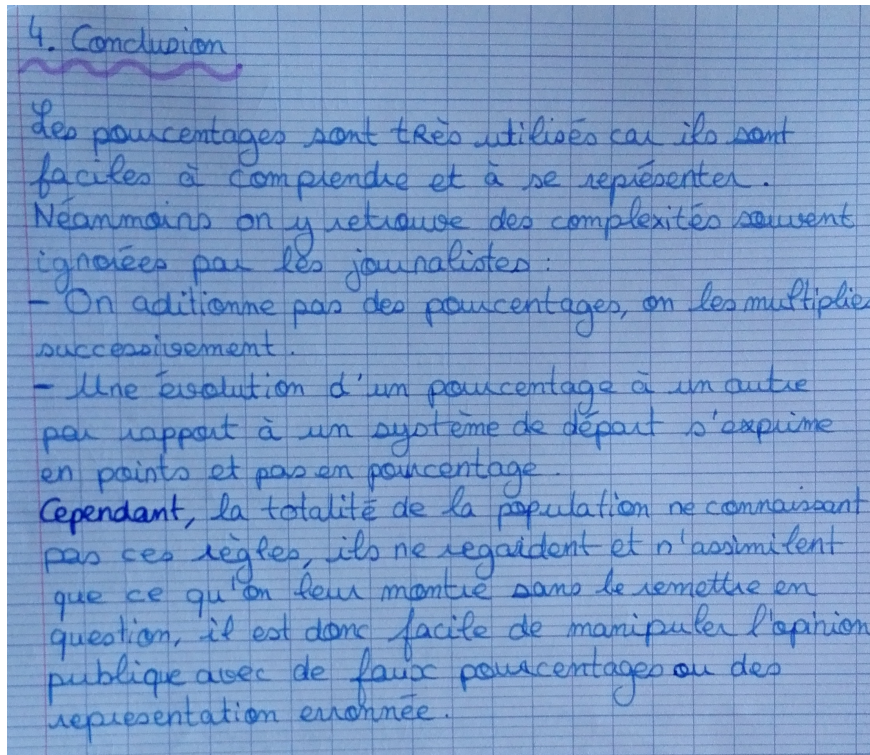 4. Conclusion
Les pourcentages sont très utilisés car ils sont
faciles à comprendre et à se représenter.
Néanmoins on y retrouve des complexités souvent
ignorées par les journalistes :
- On aditionne pas des pourcentages, on les multiplie
successivement.
- Une évolution d'un pourcentage à un autre
par rapport à un système de départ s'exprime
en points et pas en pourcentage.
Cependant, la totalité de la population ne connaissant
pas ces règles, ils ne regardent et n'assimilent
que ce qu'on leur montre sans le remettre en
question, il est donc facile de manipuler l'opinion
publique avec de faux pourcentages ou des
representation erronnée.